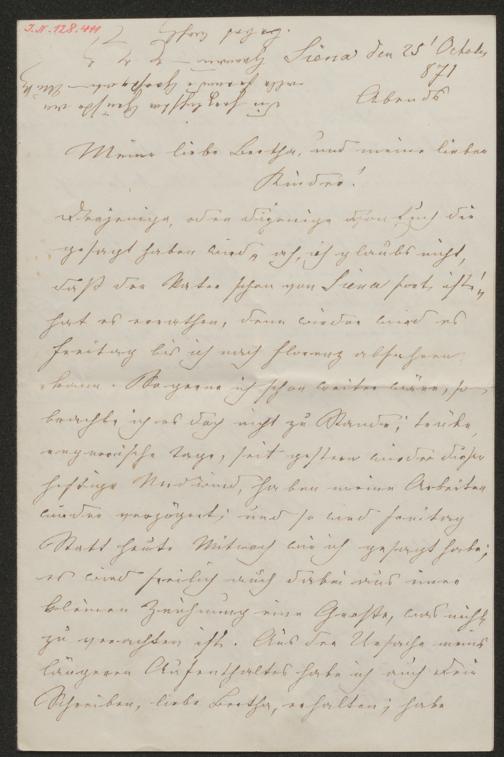 I.N. 128.411
Siena den 25' October
871
Abends
Meine liebe Bertha, und meine lieben
Kinder!
Derjenige, oder diejenige von Euch die
gesagt haben wird „ach, ich glaubs nicht,
daß der Vater schon von Siena fort ist!"
hat es errathen, denn wieder wird es
Freitag bis ich nach Florenz abfahren
kann. So gerne ich schon weiter wäre, so
brachte ich es doch nicht zu Stande; trübe
regnerische Tage, seit gestern wieder dieser
heftige Wind, haben meine Arbeiten
wieder verzögert; und so wird Freitag
Statt heute Mitwoch wie ich gesagt habe;
es wird freilich auch dabei aus einer
kleinen Zeichnung eine Große, was nicht
zu verachten ist. Aus der Ursache meines
längeren Aufenthaltes habe ich auch Dein
Schreiben, liebe Bertha, erhalten; habe